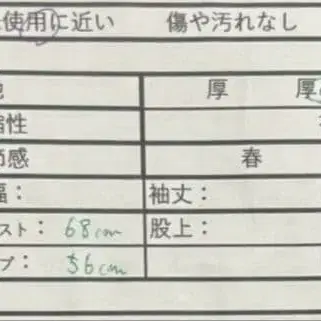 使用に近い 傷や汚れなし
厚 厚
性
感 春
： 袖丈：
スト： 68cm 股上：
プ： 56cm